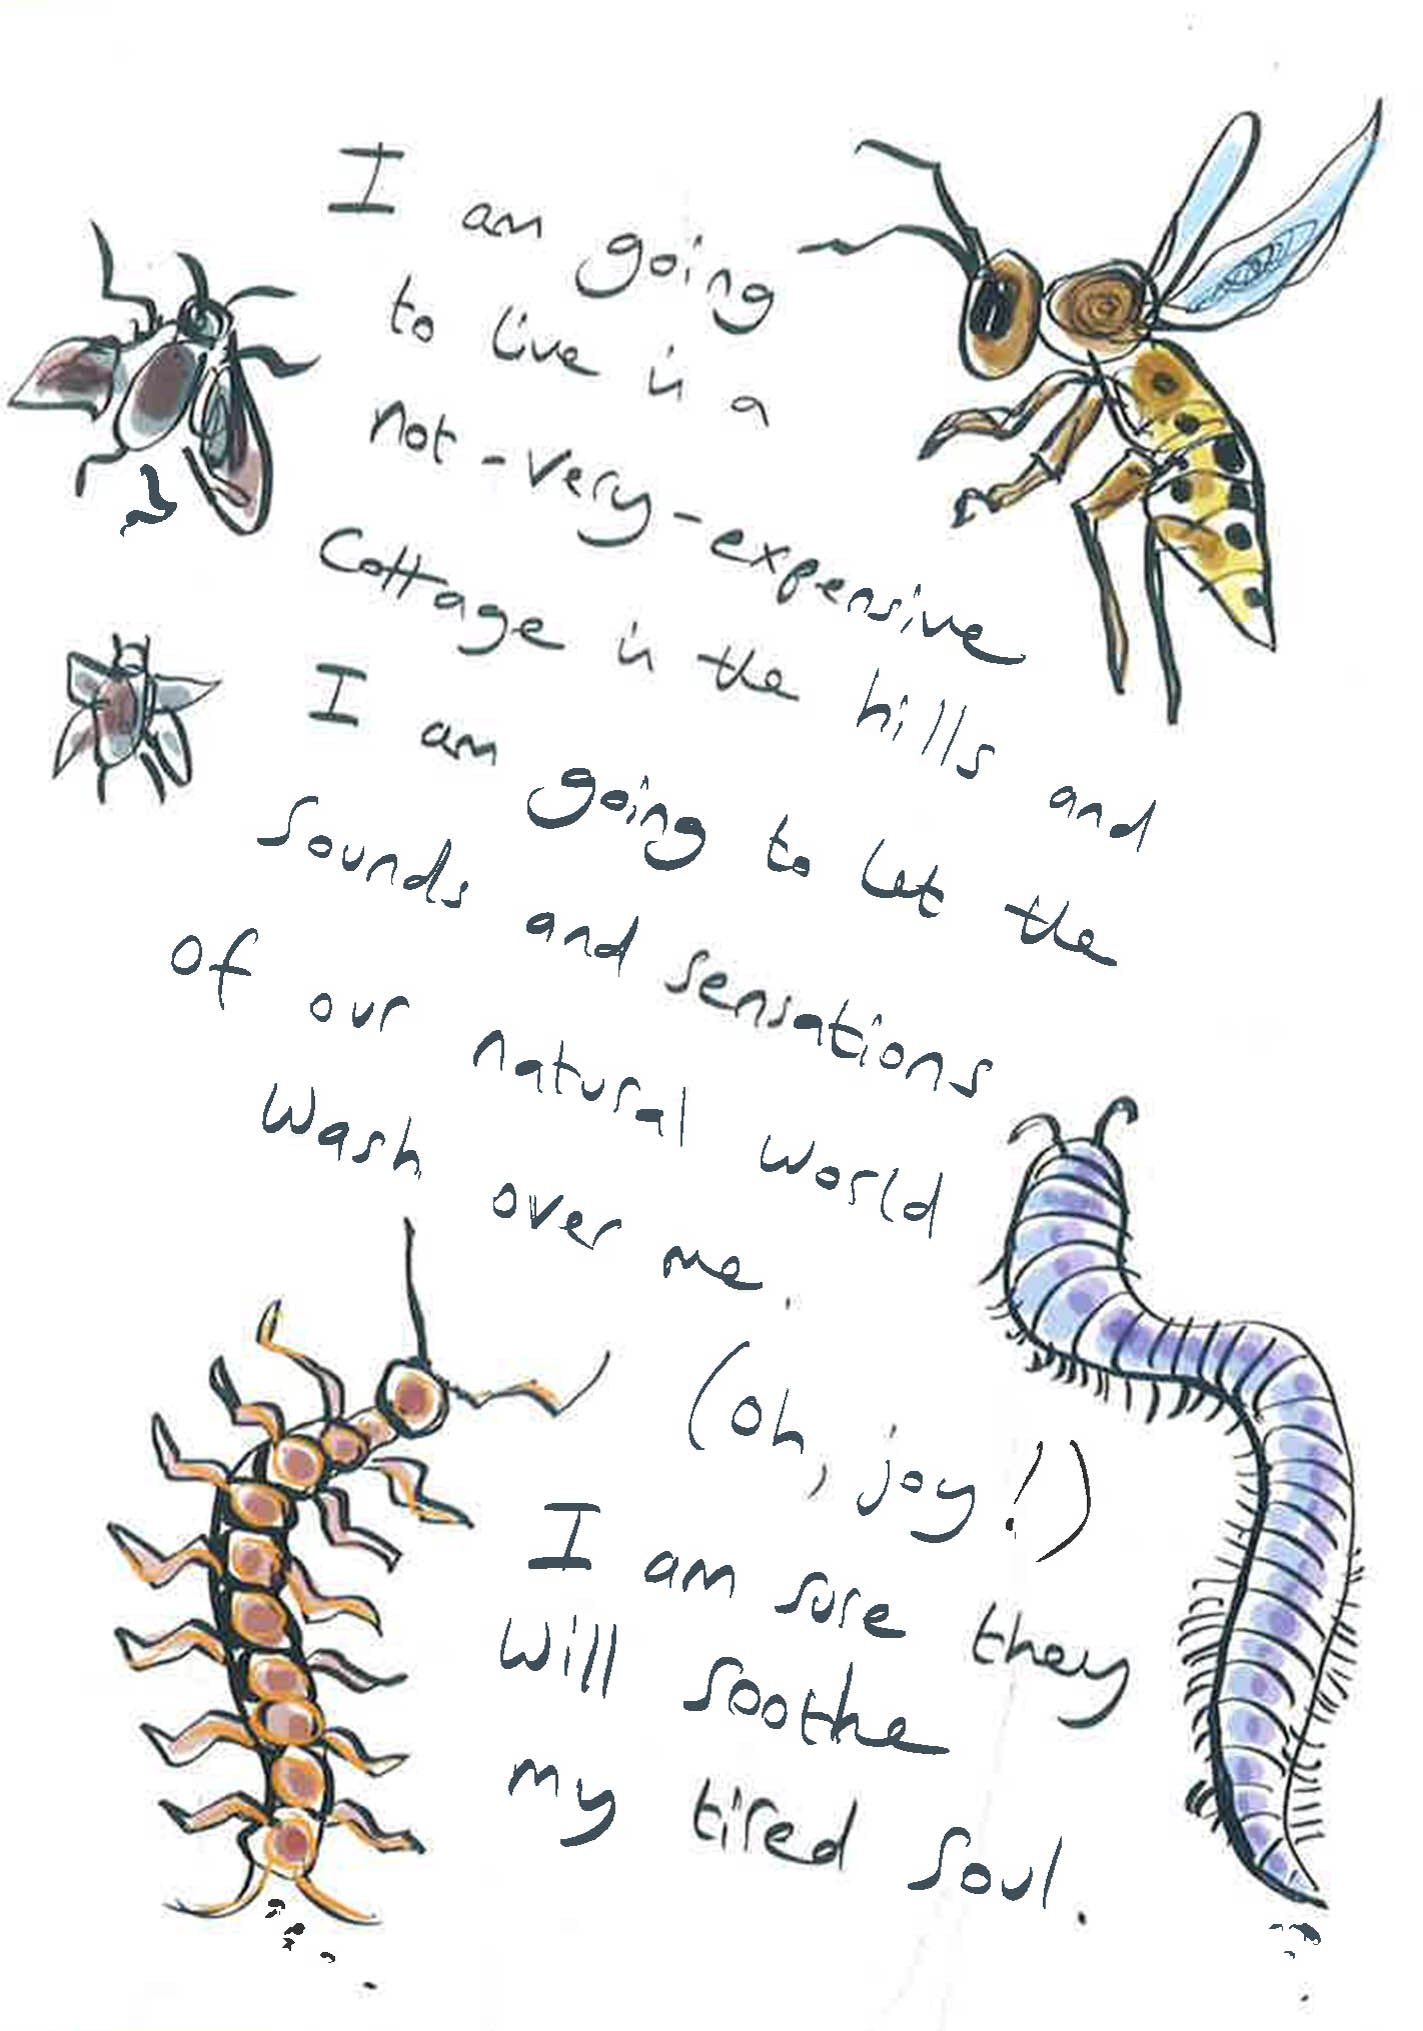 I am going
to live in a
not-very-expensive
Cottage in the hills and
I am going to let the
Sounds and sensations
of our natural world
Wash over me.
(Oh, joy!)
I am sure they
will soothe
my tired soul.